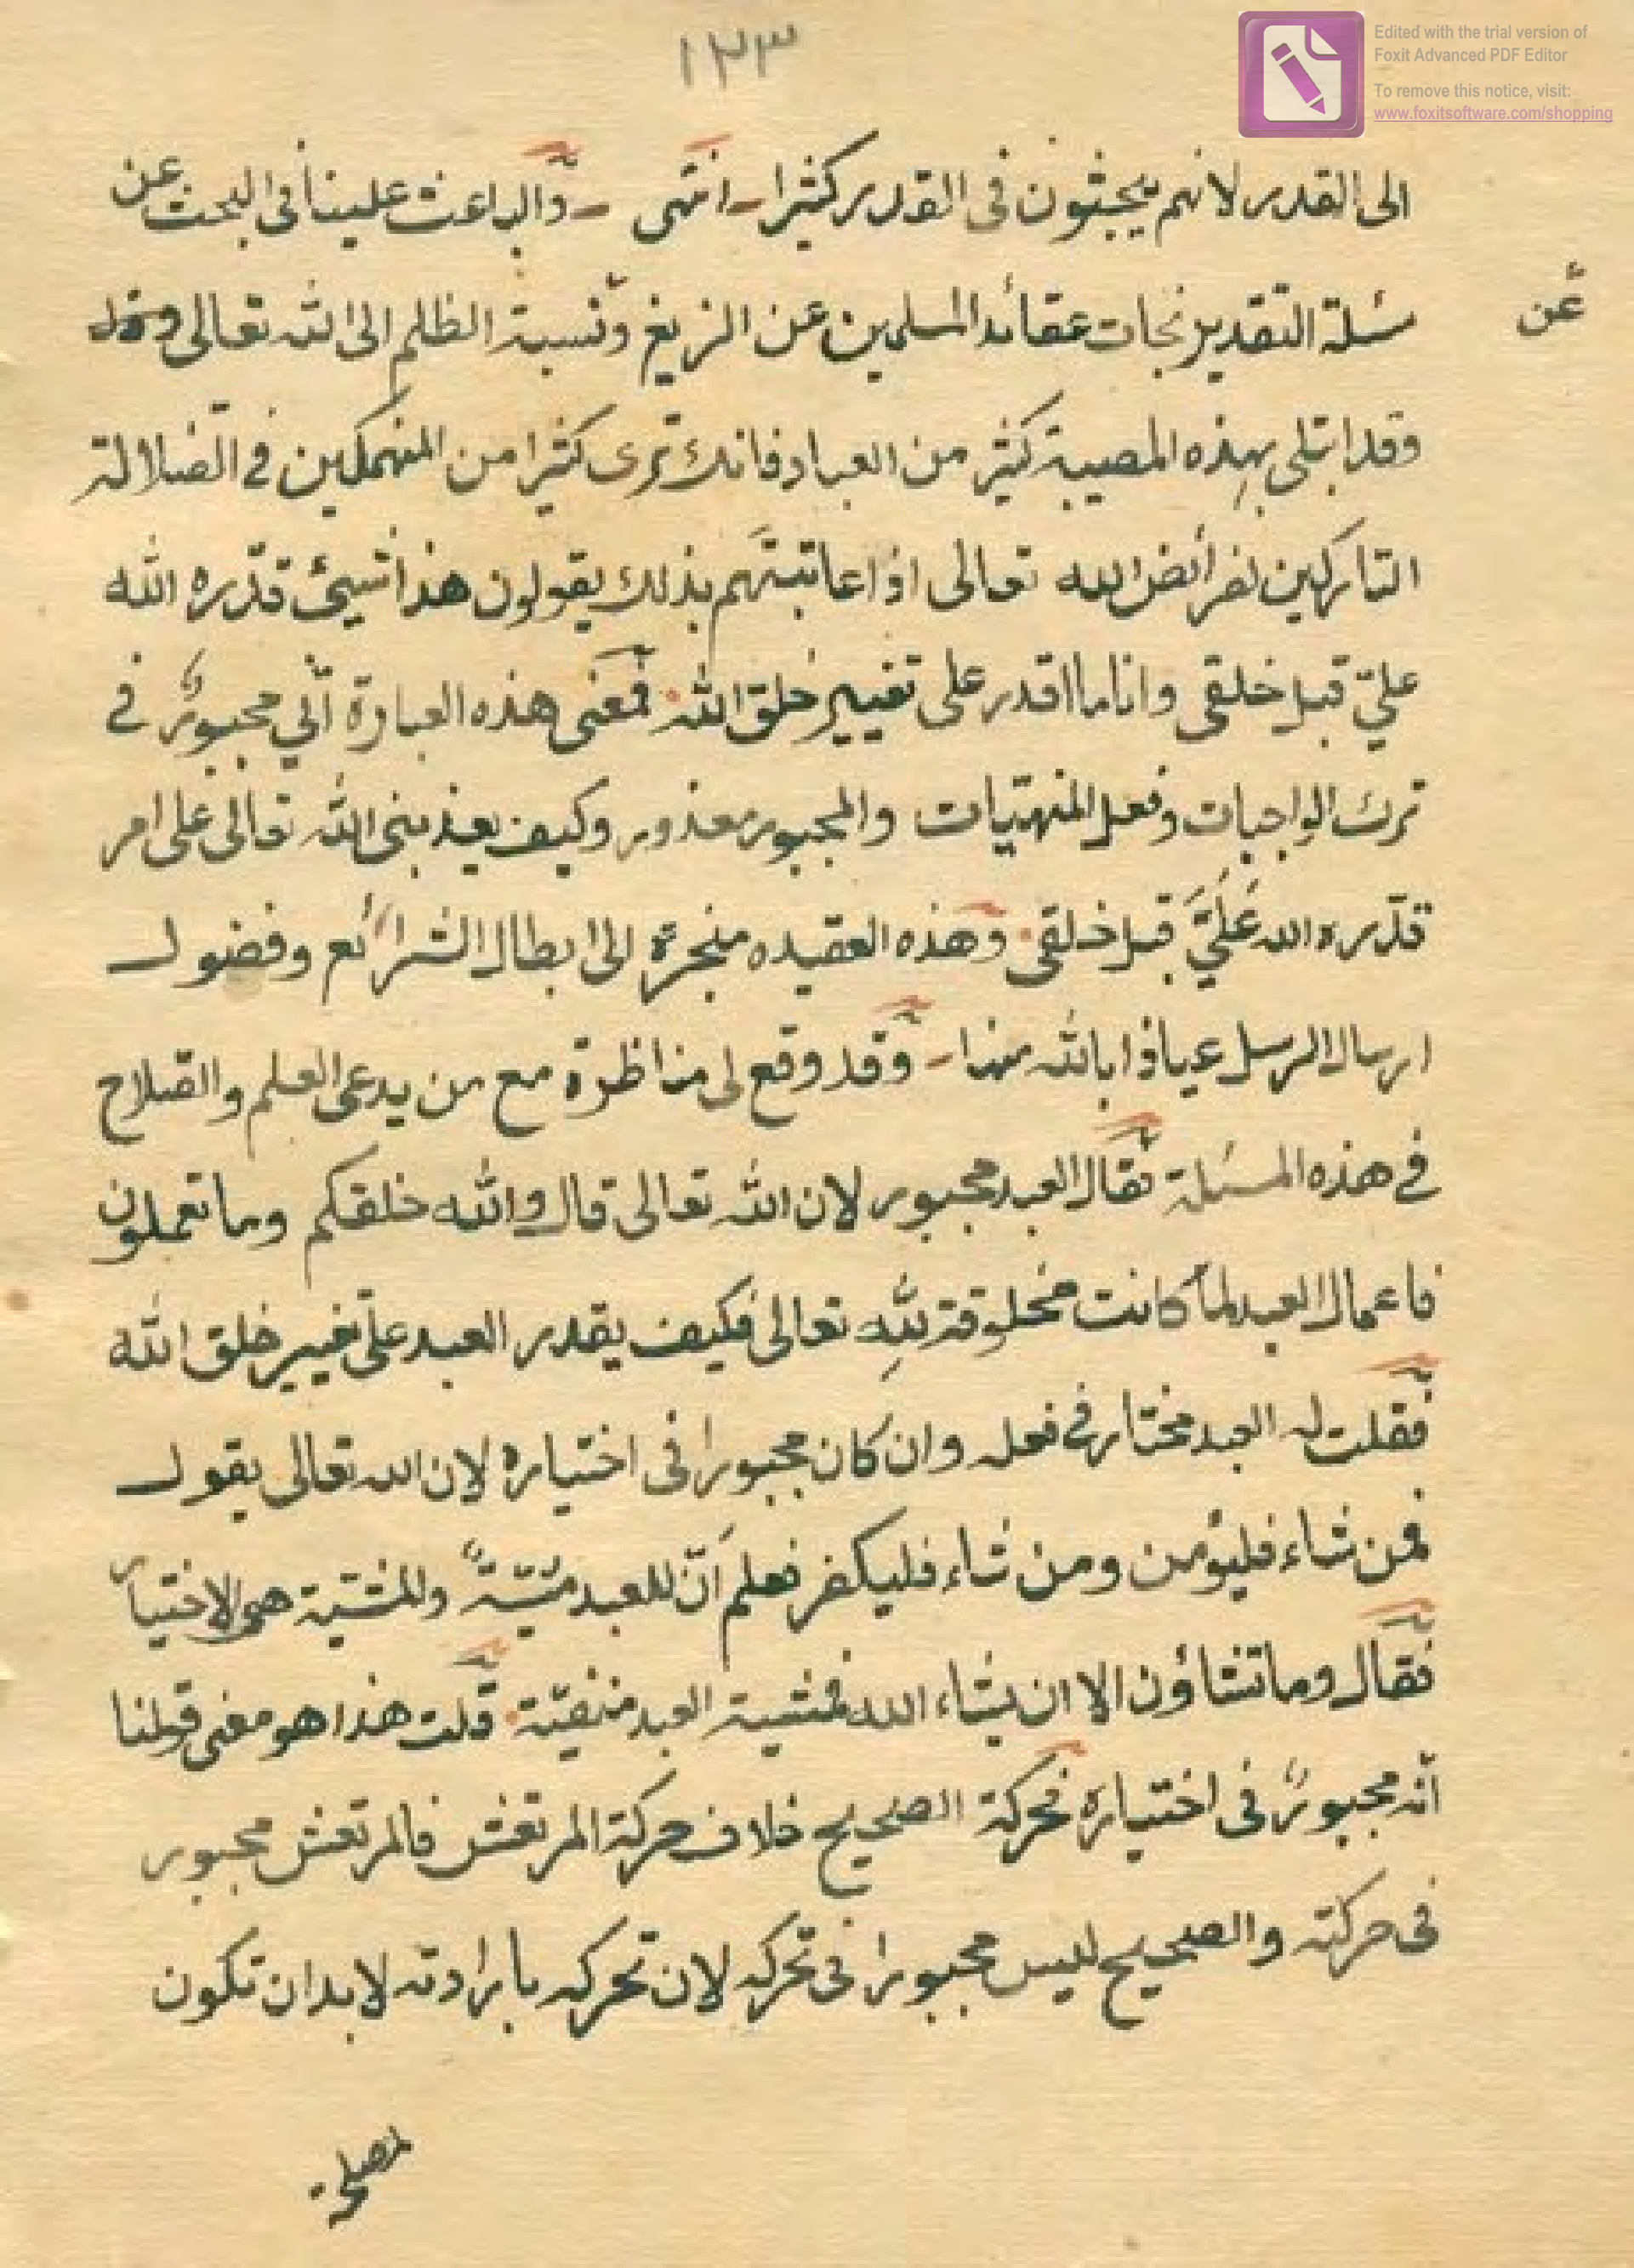 ١٢٣
Edited with the trial version of
Foxit Advanced PDF Editor
To remove this notice, visit:
www.foxitsoftware.com/shopping
الى القدر لانهم يبحثون فى القدر كثيرا - انتهى - والباعث علينا فى البحث عن
عن
مسئلة التقدير نجات عقائد المسلمين عن الزيغ ونسبة الظلم الى الله تعالى
وقد ابتلى بهذه المصيبة كثير من العباد فانك ترى كثيرا من المنهمكين فى الضلالة
التاركين لفرائض الله تعالى اذا عاتبتهم بذلك يقولون هذا شيئ قدّره الله
عليّ قبل خلقى وانا ما اقدر على تغيير خلق الله فمعنى هذه العبارة انّي مجبورٌ فى
ترك الواجبات وفعل المنهيّات والمجبور معذور وكيف يعذبنى الله تعالى على امر
قدّره الله عَلَيَّ قبل خلقى وهذه العقيده منجرة الى ابطال الشرائع وفضول
ارسال الرسل عياذا بالله منها - وقد وقع لى مناظرة مع من يدعى العلم والصلاح
فى هذه المسئلة فقال العبد مجبور لان الله تعالى قال والله خلقكم وما تعملون
فاعمال العبد لما كانت مخلوقة للهِ تعالى فكيف يقدر العبد على تغيير خلق الله
فقلت له العبد مختار فى فعله وان كان مجبورا فى اختياره لان الله تعالى يقول
فمن شاء فليؤمن ومن شاء فليكفر فعلم اَنّ للعبد مشيّةً والمشيّة هى الاختيار
فقال وما تشاؤن الا ان يشاء الله فمشية العبد منفيّة قلت هذا هو معنى قولنا
انّه مجبورٌ فى اختياره فحركة الصحيح خلاف حركة المرتعش فالمرتعش مجبور
فى حركته والصحيح ليس مجبورا فى تحركه لان تحركه بارادته لا بد ان تكون